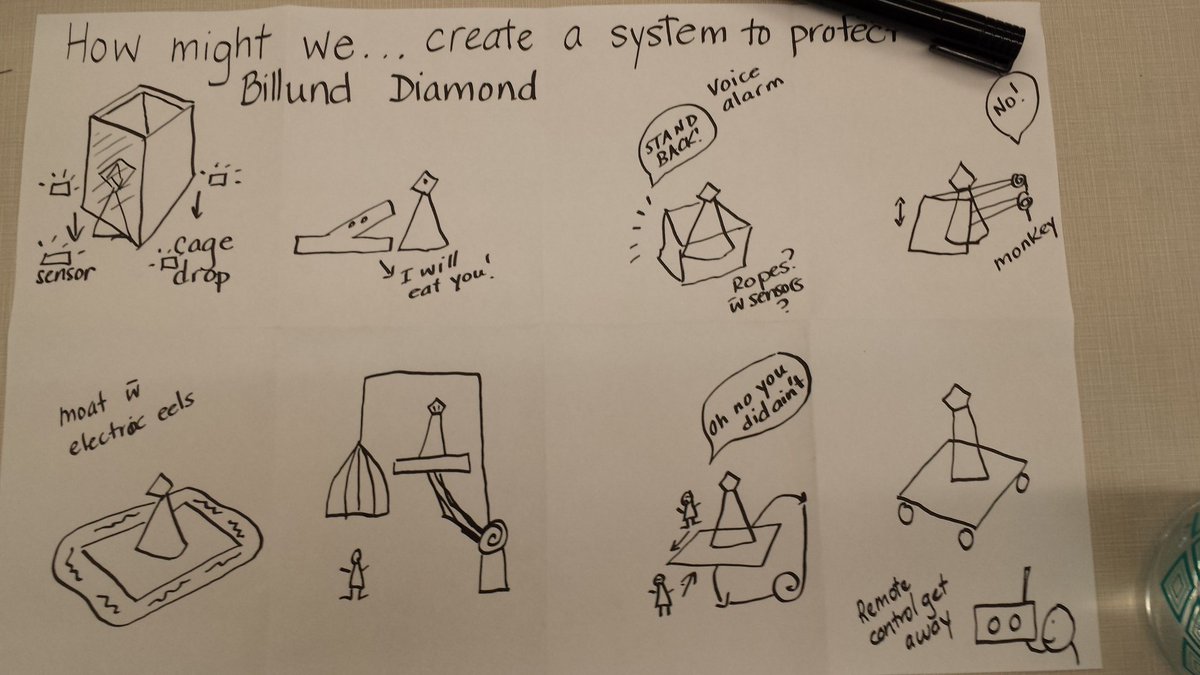 How might we... create a system to protect
Billund Diamond
sensor
cage
drop
I will
eat you!
Voice
alarm
STAND
BACK!
Ropes?
w̄ sensors
?
No!
monkey
moat w̄
electric eels
Oh no you
did ain't
Remote
control get
away